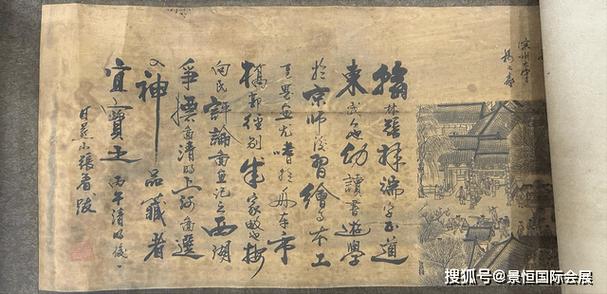 翰林張擇端字正道
東武人也幼讀書遊學
於京師後習繪事本工
其界畫尤嗜於舟車市
橋郭徑別成家數也按
向氏評論圖畫記云西湖
爭標圖清明上河圖選
入神品藏者
宜寶之丙午清明後一
日燕山張著跋
搜狐号@景恒国际会展